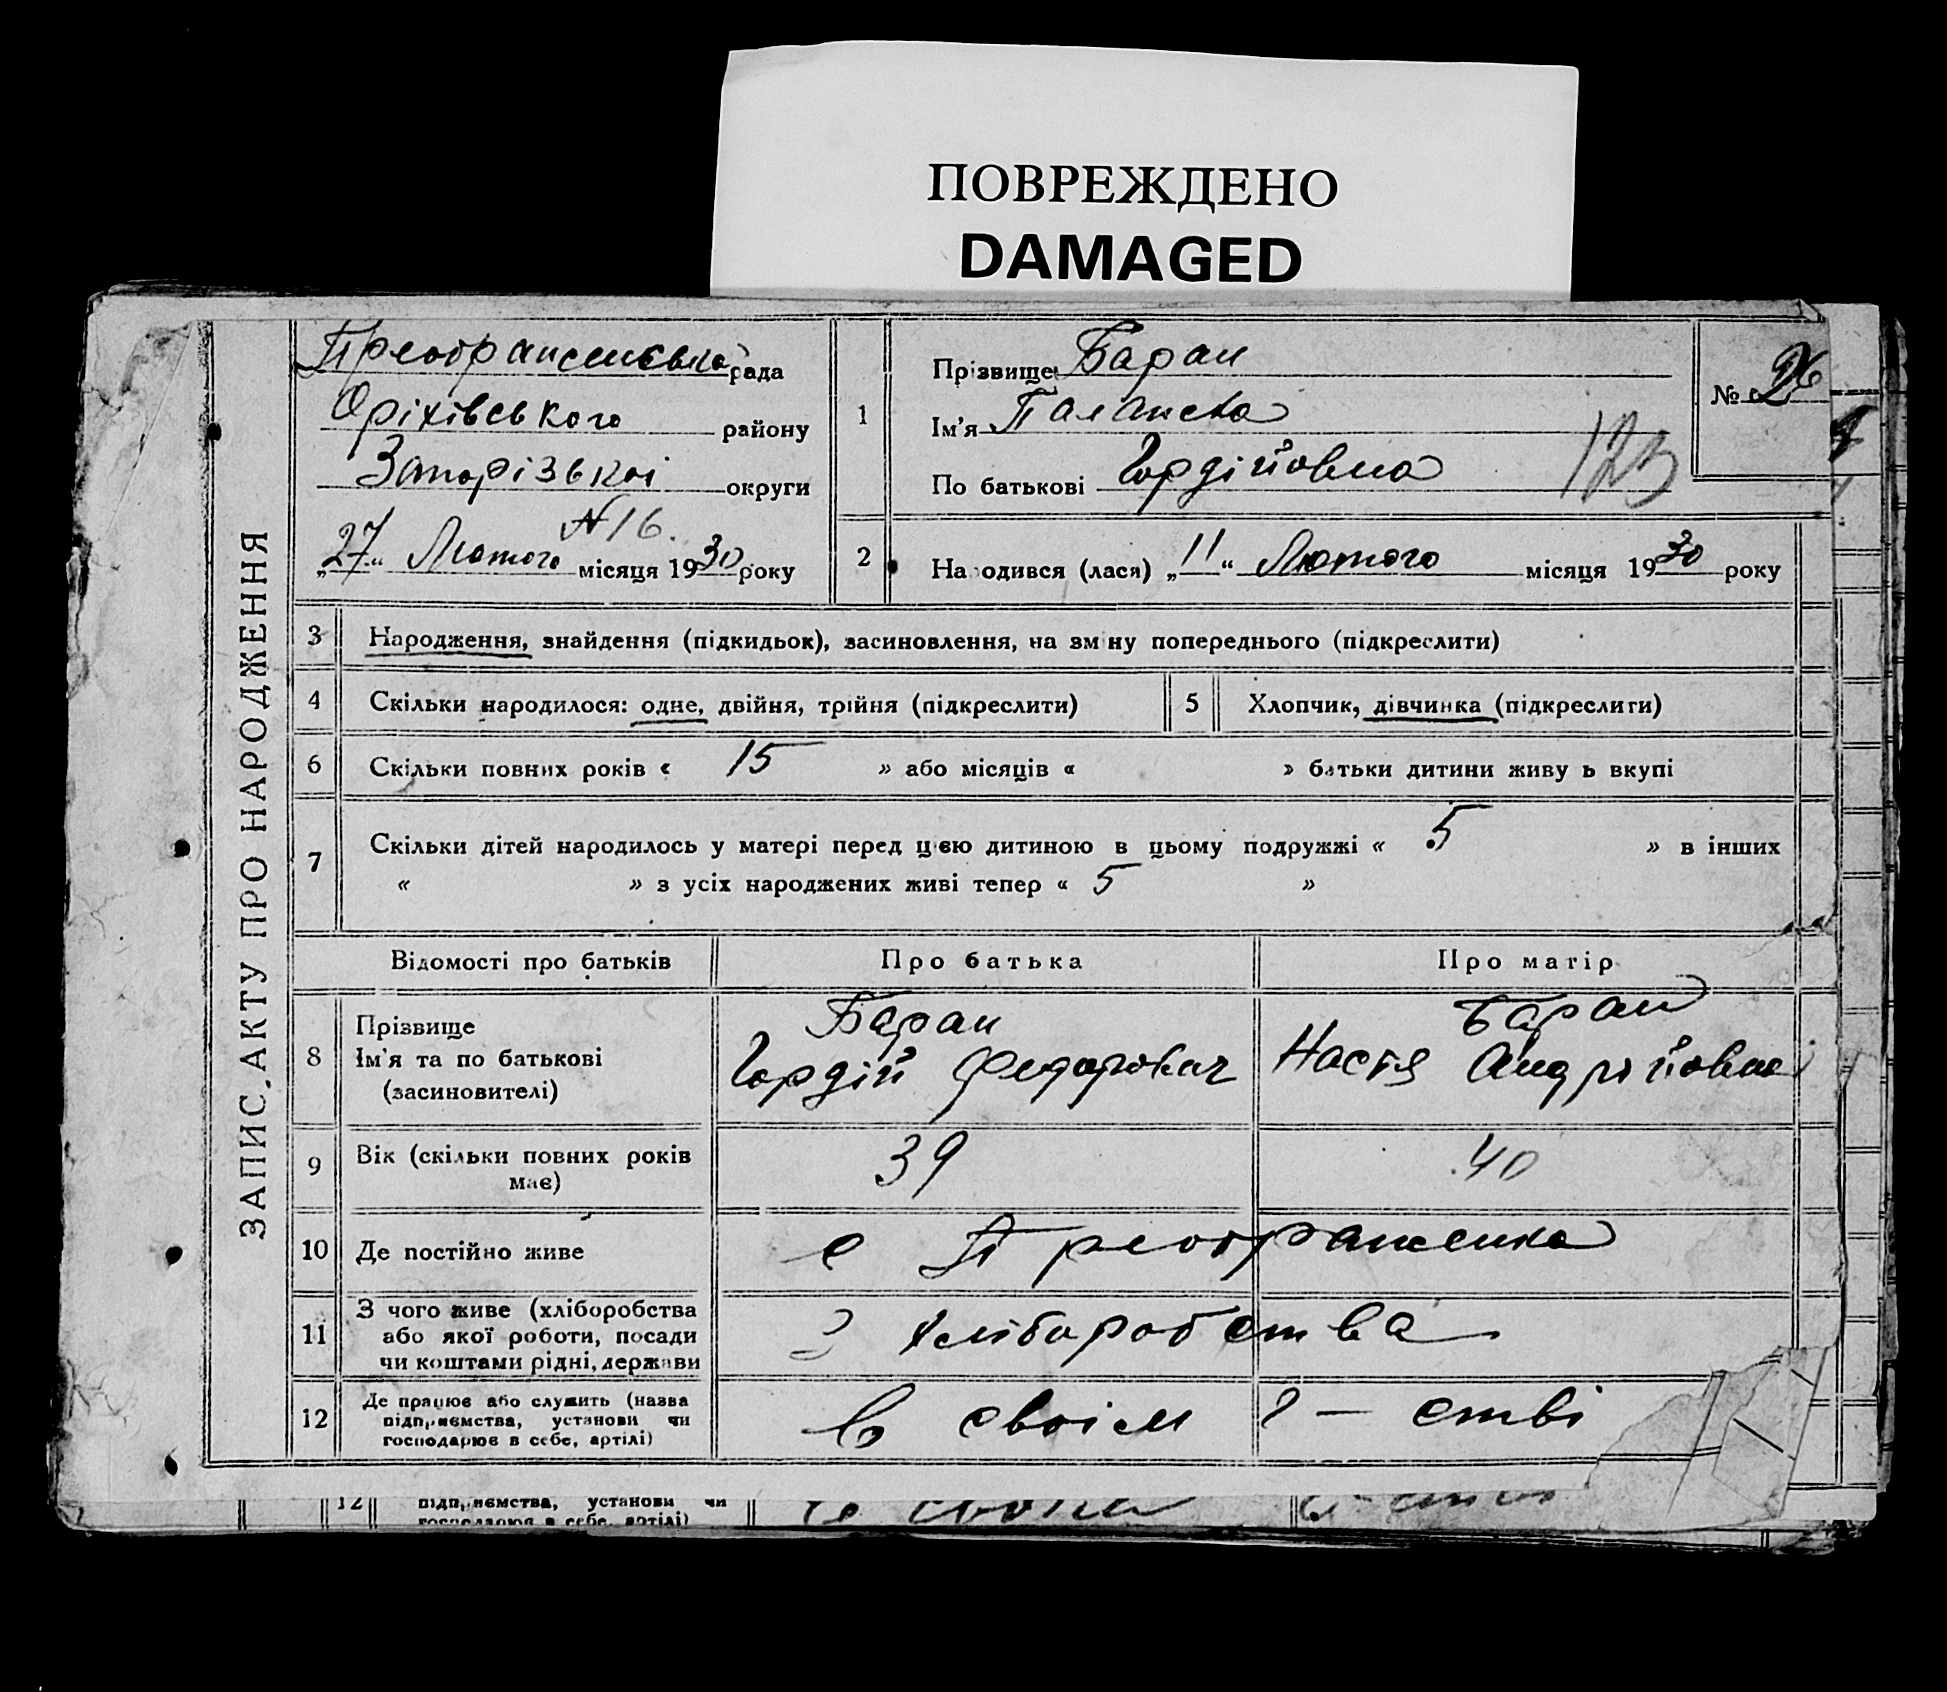 ПОВРЕЖДЕНО
DAMAGED
ЗАПИС АКТУ ПРО НАРОДЖЕННЯ
Преображенська рада
Оріхівського району
Запорізькоі округи
N 16.
„27“ Лютого місяця 1930 року
1
Прізвище Баран
Ім'я Палажка
По батькові Гордійовна
123
№ 26
2
Народився (лася) „11“ Лютого місяця 1930 року
3 Народження, знайдення (підкидьок), засиновлення, на зміну попереднього (підкреслити)
4 Скільки народилося: одне, двійня, трійня (підкреслити) 5 Хлопчик, дівчинка (підкреслити)
6 Скільки повних років « 15 » або місяців « » батьки дитини живуть вкупі
7 Скільки дітей народилось у матері перед цією дитиною в цьому подружжі « 5 » в інших
« » з усіх народжених живі тепер « 5 »
Відомості про батьків Про батька Про матір
8 Прізвище
Ім'я та по батькові
(засиновителі)
Баран
Гордій Федорович
Баран
Настя Андрійовна
9 Вік (скільки повних років
має)
39 40
10 Де постійно живе с Преображенка
11 З чого живе (хліборобства
або якої роботи, посади
чи коштами рідні, держави
З хліборобства
12 Де працює або служить (назва
підприємства, установи чи
господарює в себе, артілі)
В своім г-стві
12 підприємства, установи чи
господарює в себе, артілі)